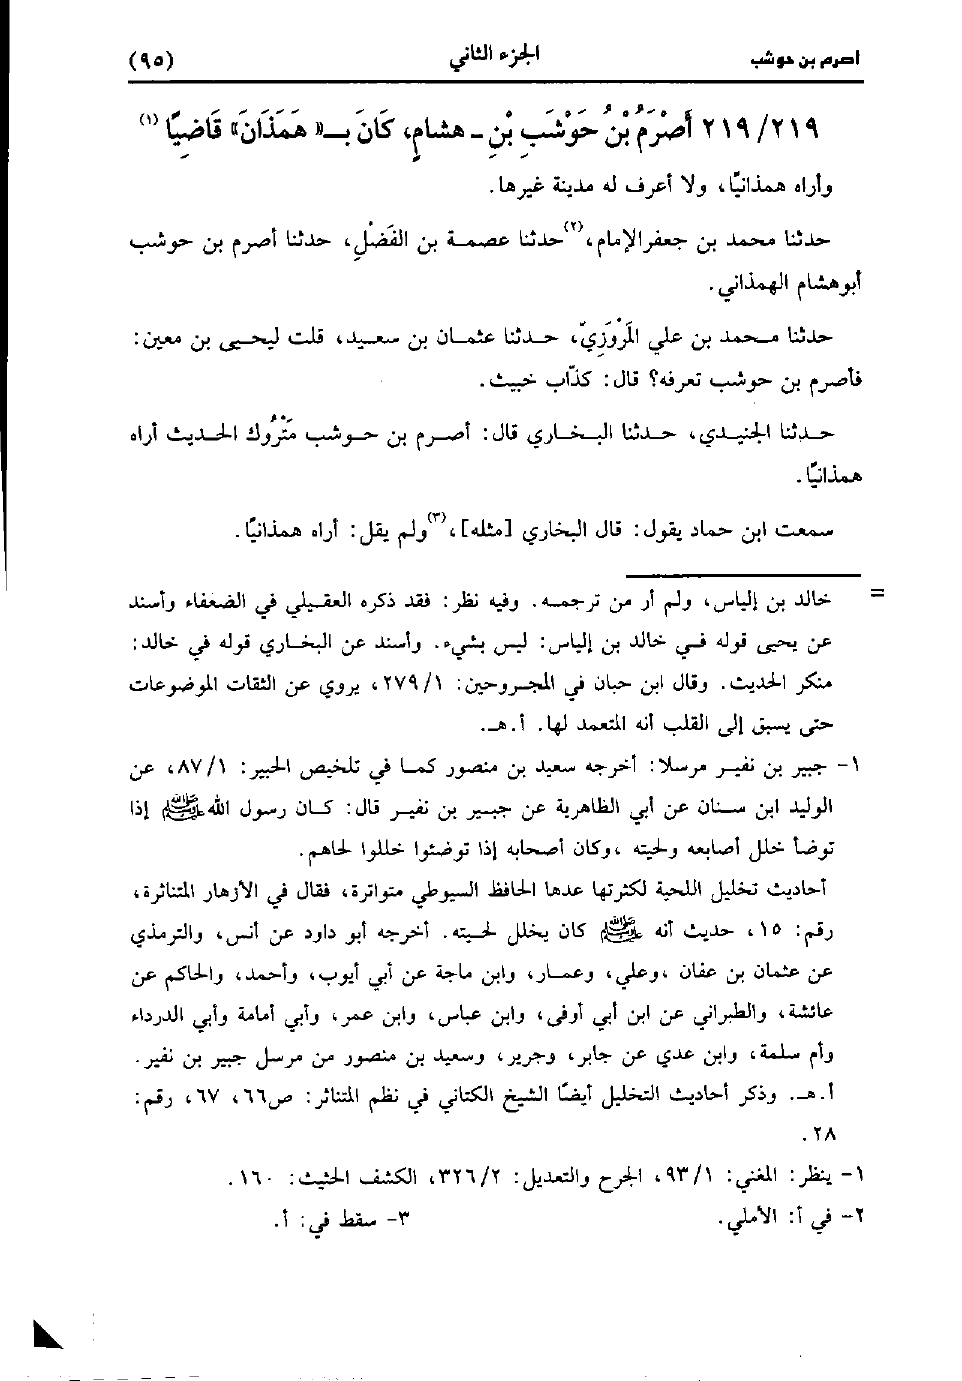 أصرم بن حوشب الجزء الثاني (٩٥)
٢١٩/٢١٩ أَصْرَمُ بْنُ حَوْشَبِ بْنِ - هشامٍ، كَانَ بـ« هَمَذَانَ» قَاضِيًا (١)
وأراه همذانيًا، ولا أعرف له مدينة غيرها.
حدثنا محمد بن جعفر الإمام،(٢) حدثنا عصمة بن الفَضْلِ، حدثنا أصرم بن حوشب
أبو هشام الهمذاني.
حدثنا محمد بن علي المَرْوَزِيّ، حدثنا عثمان بن سعيد، قلت ليحيى بن معين:
فأصرم بن حوشب تعرفه؟ قال: كذّاب خبيث.
حدثنا الجنيدي، حدثنا البخاري قال: أصرم بن حوشب مَتْرُوك الحديث أراه
همذانيًا.
سمعت ابن حماد يقول: قال البخاري [مثله]،(٣) ولم يقل: أراه همذانيًا.
= خالد بن إلياس، ولم أر من ترجمه. وفيه نظر: فقد ذكره العقيلي في الضعفاء وأسند
عن يحيى قوله في خالد بن إلياس: ليس بشيء. وأسند عن البخاري قوله في خالد:
منكر الحديث. وقال ابن حبان في المجروحين: ٢٧٩/١، يروي عن الثقات الموضوعات
حتى يسبق إلى القلب أنه المتعمد لها. أ.هـ.
١- جبير بن نفير مرسلا: أخرجه سعيد بن منصور كما في تلخيص الحبير: ٨٧/١، عن
الوليد ابن سنان عن أبي الظاهرية عن جبير بن نفير قال: كان رسول الله ﷺ إذا
توضأ خلل أصابعه ولحيته ،وكان أصحابه إذا توضئوا خللوا لحاهم.
أحاديث تخليل اللحية لكثرتها عدها الحافظ السيوطي متواترة، فقال في الأزهار المتناثرة،
رقم: ١٥، حديث أنه ﷺ كان يخلل لحيته. أخرجه أبو داود عن أنس، والترمذي
عن عثمان بن عفان ،وعلي، وعمار، وابن ماجة عن أبي أيوب، وأحمد، والحاكم عن
عائشة، والطبراني عن ابن أبي أوفى، وابن عباس، وابن عمر، وأبي أمامة وأبي الدرداء
وأم سلمة، وابن عدي عن جابر، وجرير، وسعيد بن منصور من مرسل جبير بن نفير.
أ.هـ. وذكر أحاديث التخليل أيضًا الشيخ الكتاني في نظم المتناثر: ص٦٦، ٦٧، رقم:
٢٨.
١- ينظر: المغني: ٩٣/١، الجرح والتعديل: ٣٢٦/٢، الكشف الحثيث: ١٦٠.
٢- في أ: الأملي. ٣- سقط في: أ.